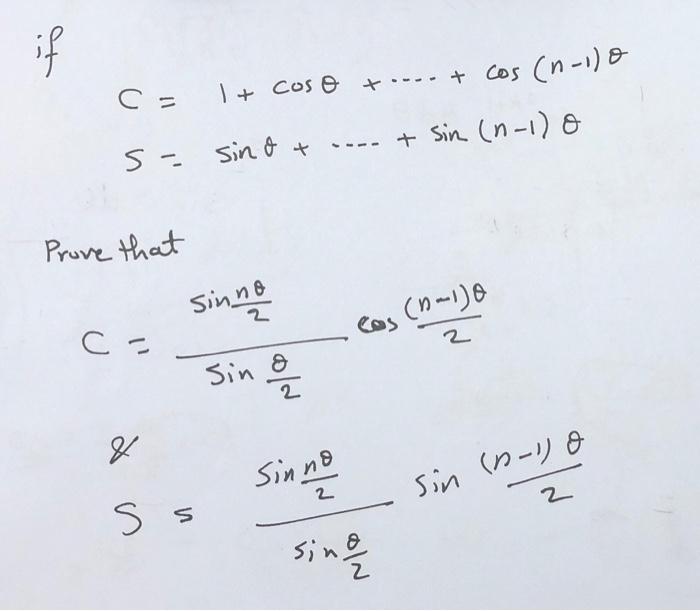 if
C = 1 + cos θ + ..... + cos (n-1) θ
S = sin θ + ---- + sin (n-1) θ
Prove that
C = sin nθ/2 / sin θ/2 cos (n-1)θ/2
&
S = sin nθ/2 / sin θ/2 sin (n-1) θ/2